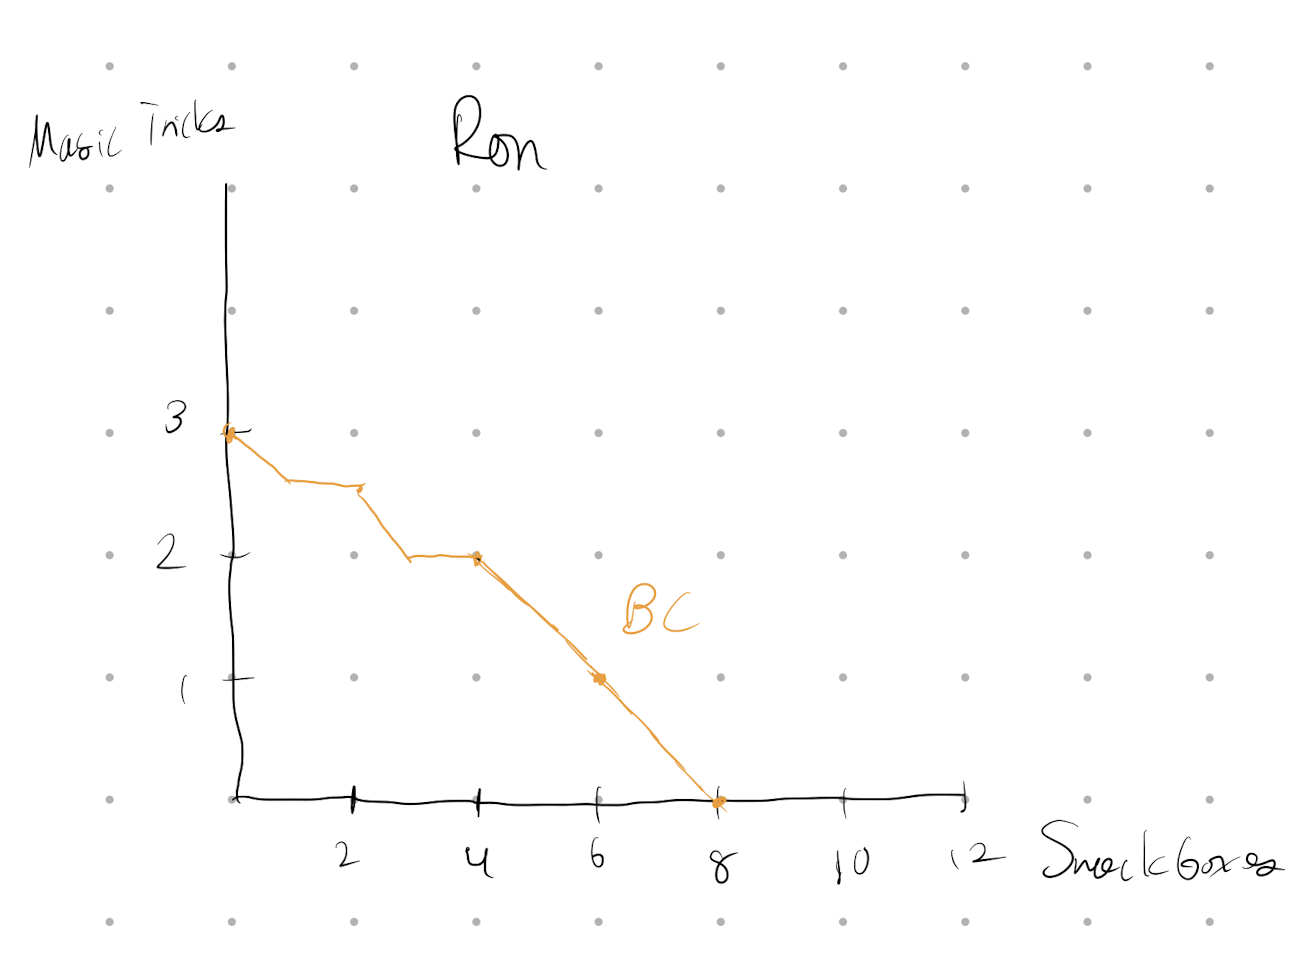 Magic Tricks
Ron
3
2
BC
1
2 4 6 8 10 12 Snackboxes